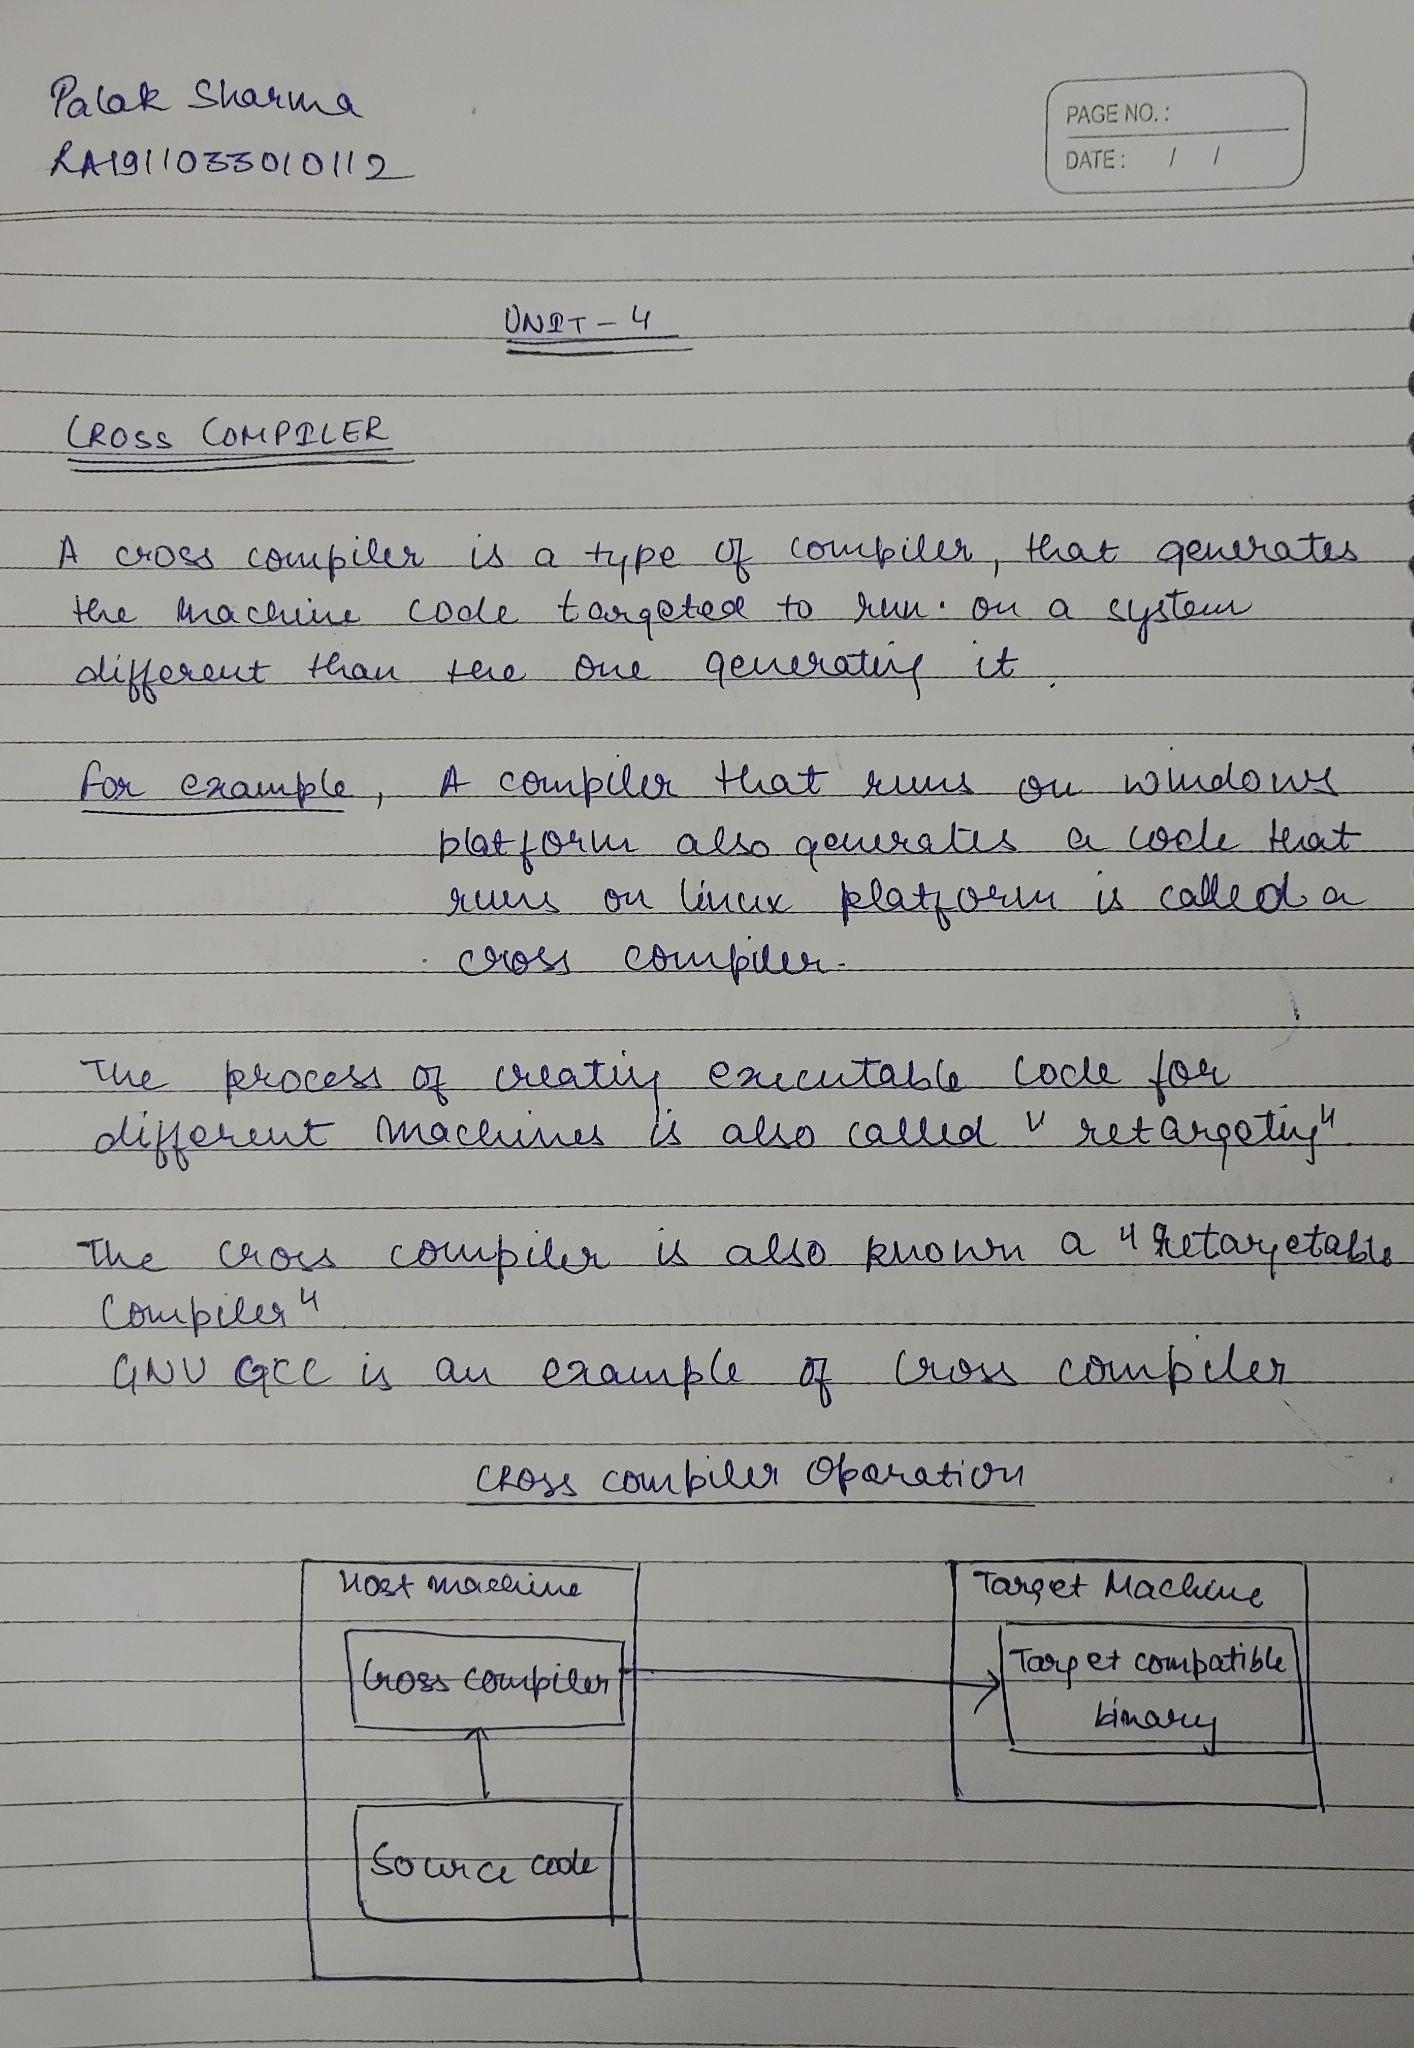 Palak Sharma
RA1911033010112
PAGE NO.:
DATE: / /
UNIT-4
CROSS COMPILER
A cross compiler is a type of compiler, that generates
the machine code targeted to run on a system
different than the one generating it.
For example, A compiler that runs on windows
platform also generates a code that
runs on linux platform is called a
cross compiler.
The process of creating executable code for
different machines is also called "retargeting"
The cross compiler is also known a "Retargetable
Compiler"
GNU GCC is an example of Cross compiler
Cross compiler Operation
Host machine
Target Machine
Cross compiler
Target compatible
binary
Source code